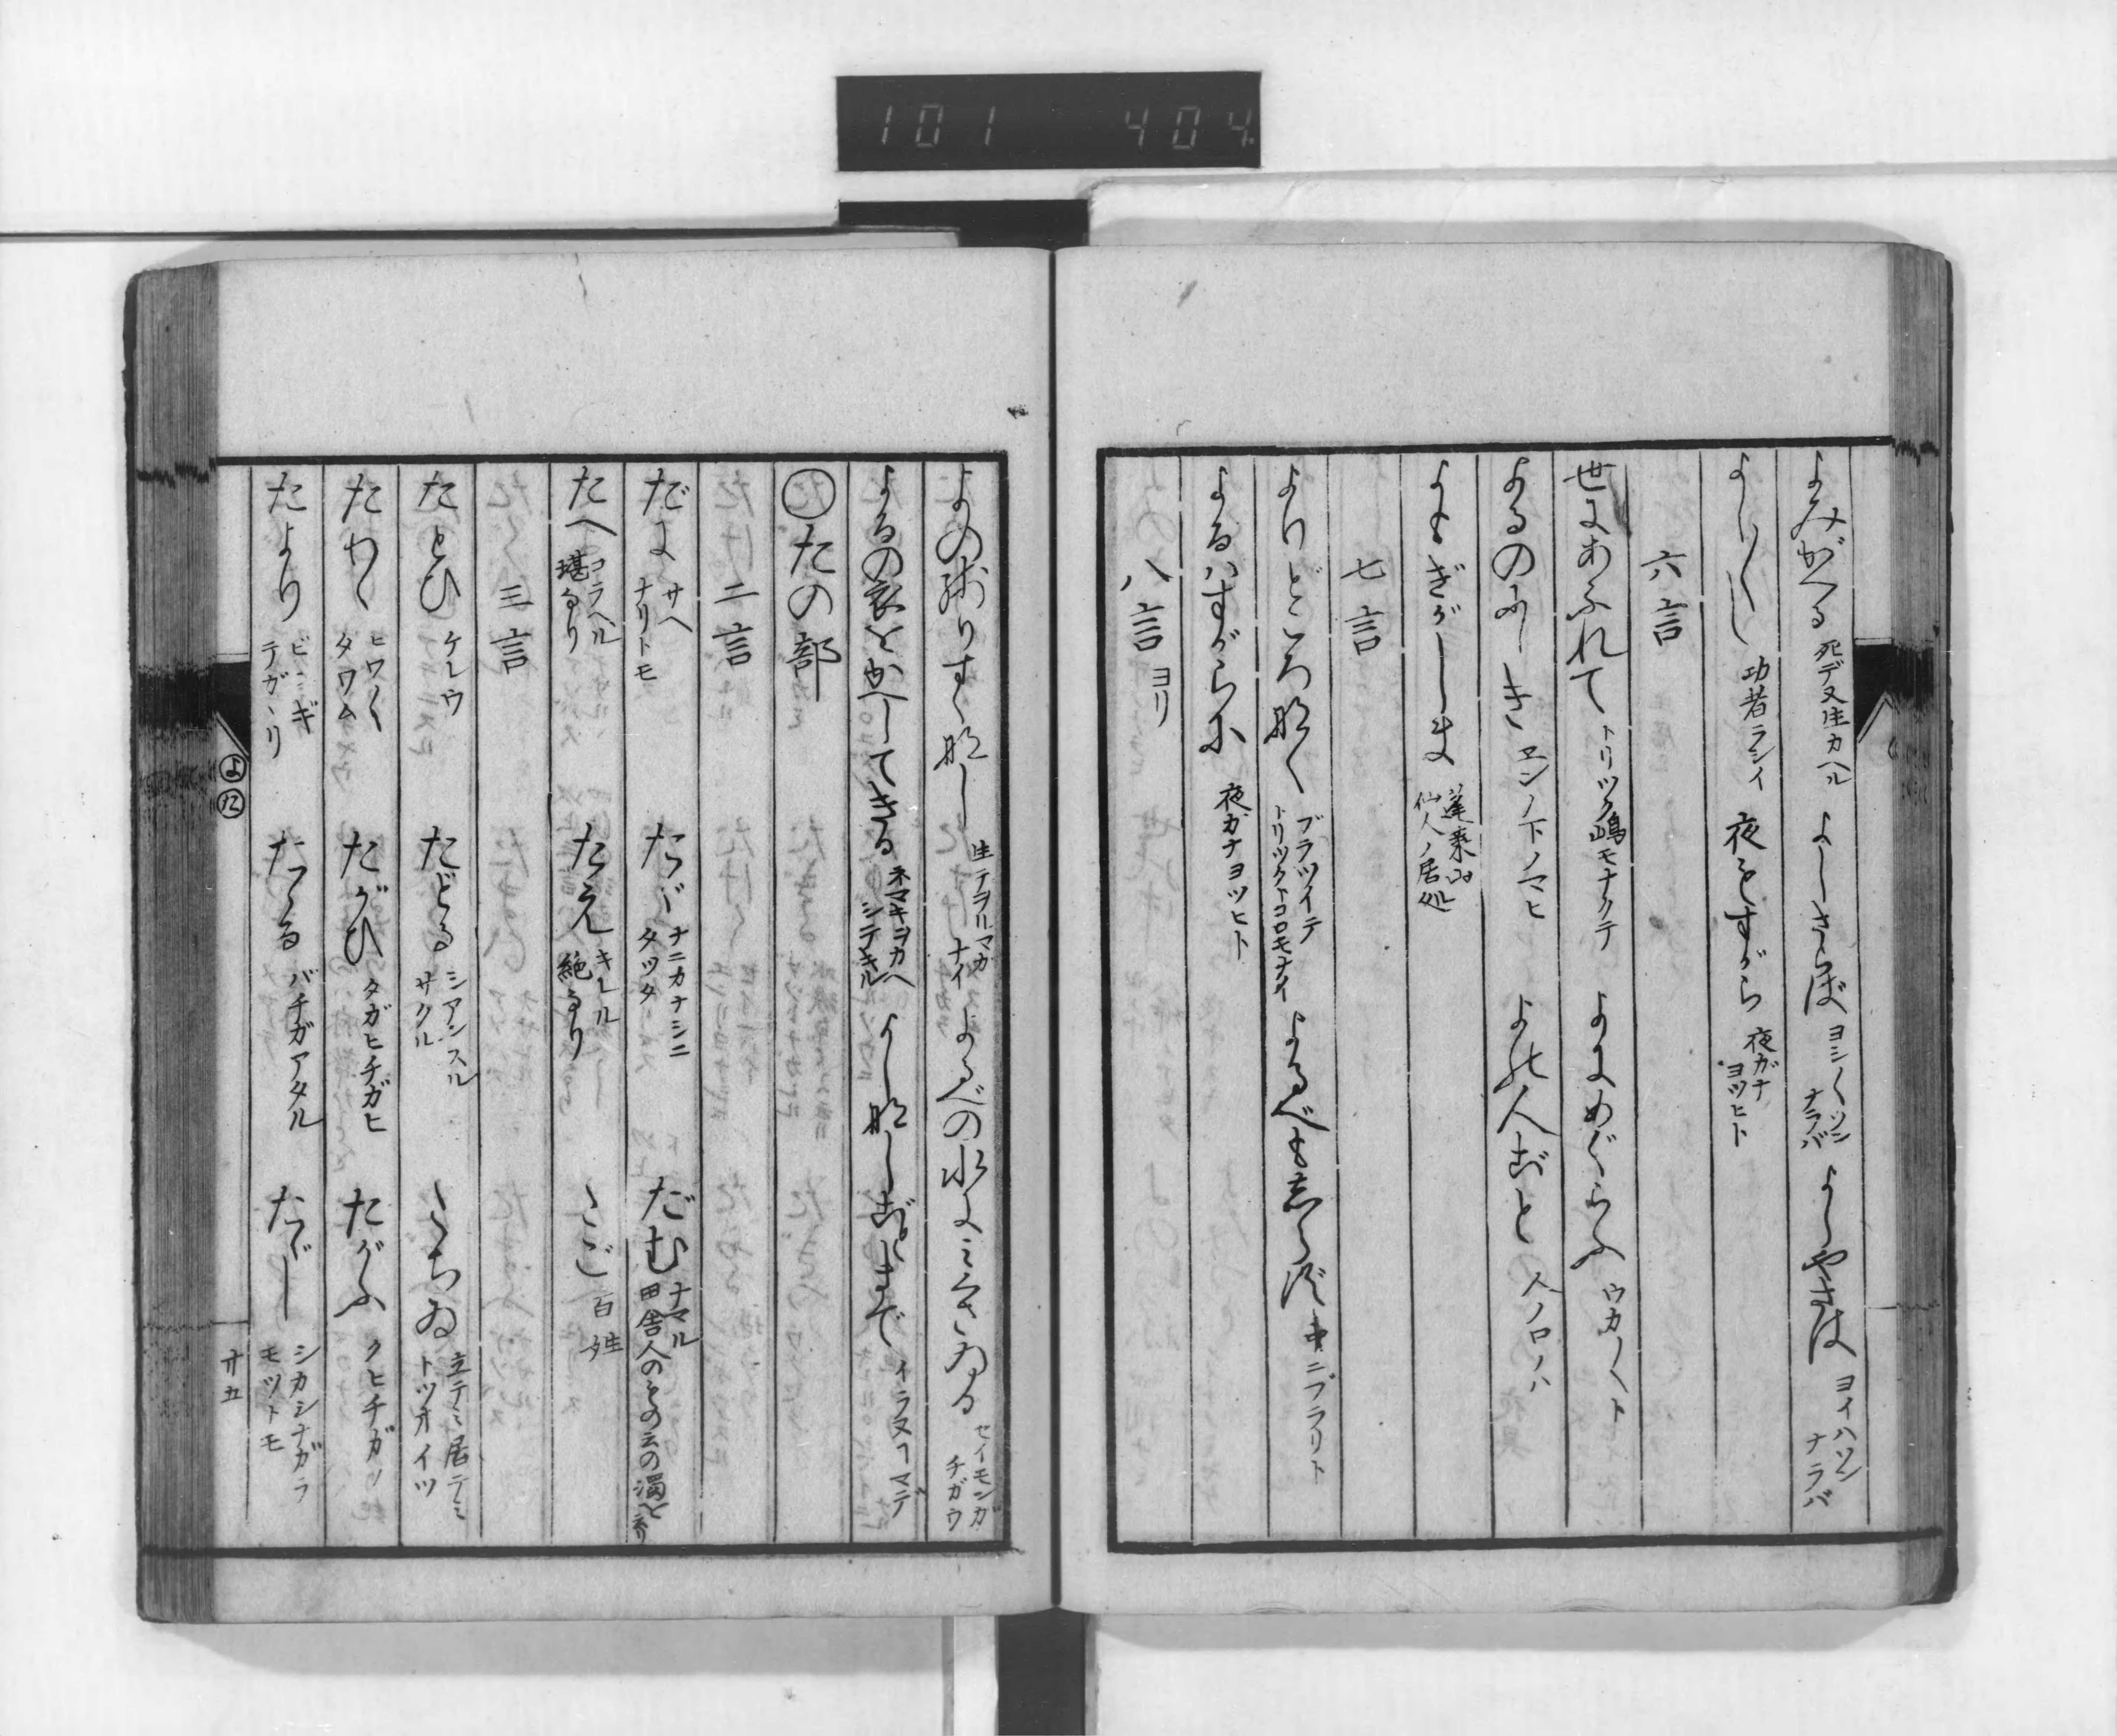 101 404
よみがへる 死デ又生カヘル よしさらば ヨシ〳〵ソンナラバ よしやさは ヨイハソンナラバ
よし〳〵し 功者ラシイ 夜もすがら 夜ガナヨツヒト
六言
世にあふれて トリツク嶋モナクテ よにめぐらふ ウカ〳〵ト
よるのふしき ヱンノ下ノマヒ よの人ごと 人ノロノハ
よもぎがしま 蓬莱山 仙人ノ居処
七言
よりどころ那く ブラツイテ トリツクトコロモナイ よるべも志らず 中ニブラリト
よるはすがらに 夜ガナヨツヒト
八言 ヨリ
よの残りすく那し 生テヲルマガナイ よるべの水にみくさゐる セイモンガチガウ
よるの衣をかへしてきる ネマキヲカヘシテキル よし那しごとまで イラヌヿマデ
た たの部
二言
だに サヘ ナリトモ たゞ ナニカナシニ タツタ だむ ナマル 田舎人のもの云の濁を云り
たへ コラヘル 堪るり たえ キレル 絶るり たご 百姓
三言
たとひ ケレウ たどる シアンスル サクル たちゐ 立テミ居テミ トツオイツ
たわく ヒワ〳〵 タワム たがひ タガヒチガヒ たがふ クヒチガウ
たより ビンギ テガヽリ たゝる バチガアタル たゞし シカシナガラ モツトモ
よ た
廿五